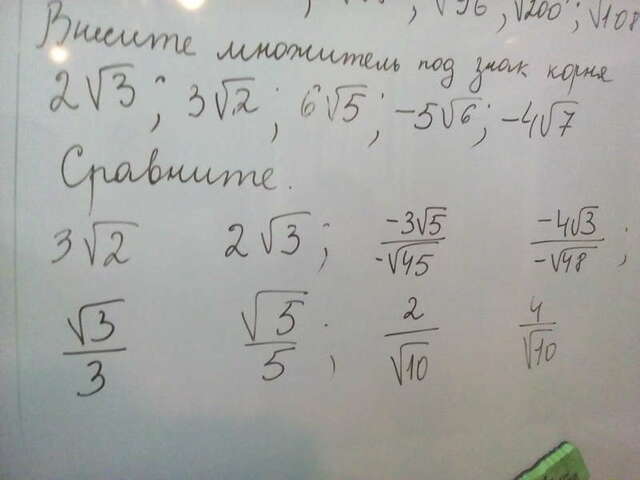 √96, √200; √108
Внесите множитель под знак корня
2√3; 3√2; 6√5; -5√6; -4√7
Сравните.
3√2 2√3; -3√5/-√45 -4√3/-√48;
√3/3 √5/5; 2/√10 4/√10